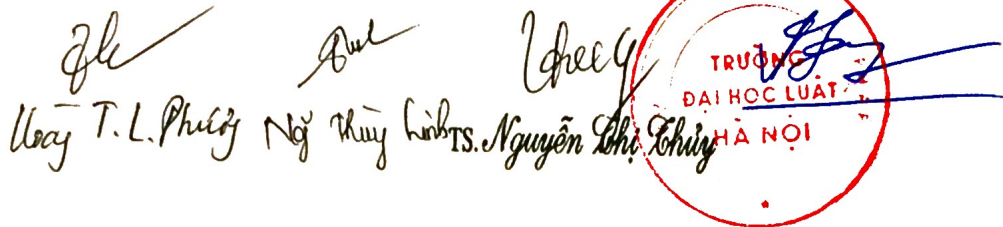 T. L. Phương Ngỹ Thùy Linh TS. Nguyễn Thị Thủy
TRƯỜNG
ĐẠI HỌC LUẬT
HÀ NỘI